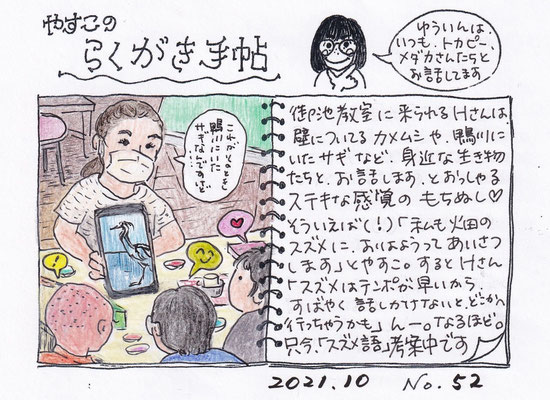 やすこの
らくがき手帖
ゆういんは、
いつも、トカピー、
メダカさんたちと
お話してます
これがそのとき
鴨川にいた
サギなんですけど
御池教室に来られるHさんは、
壁についてるカメムシや、鴨川に
いたサギなど、身近な生き物
たちと、お話します、とおっしゃる
ステキな感覚のもちぬし♡
そういえば(!)「私も畑の
スズメに、おはようってあいさつ
します」とやすこ。するとHさん
「スズメはテンポが早いから、
すばやく話しかけないと、どこかへ
行っちゃうかも」んー。なるほど。
只今、「スズメ語」考案中です
2021.10 No.52